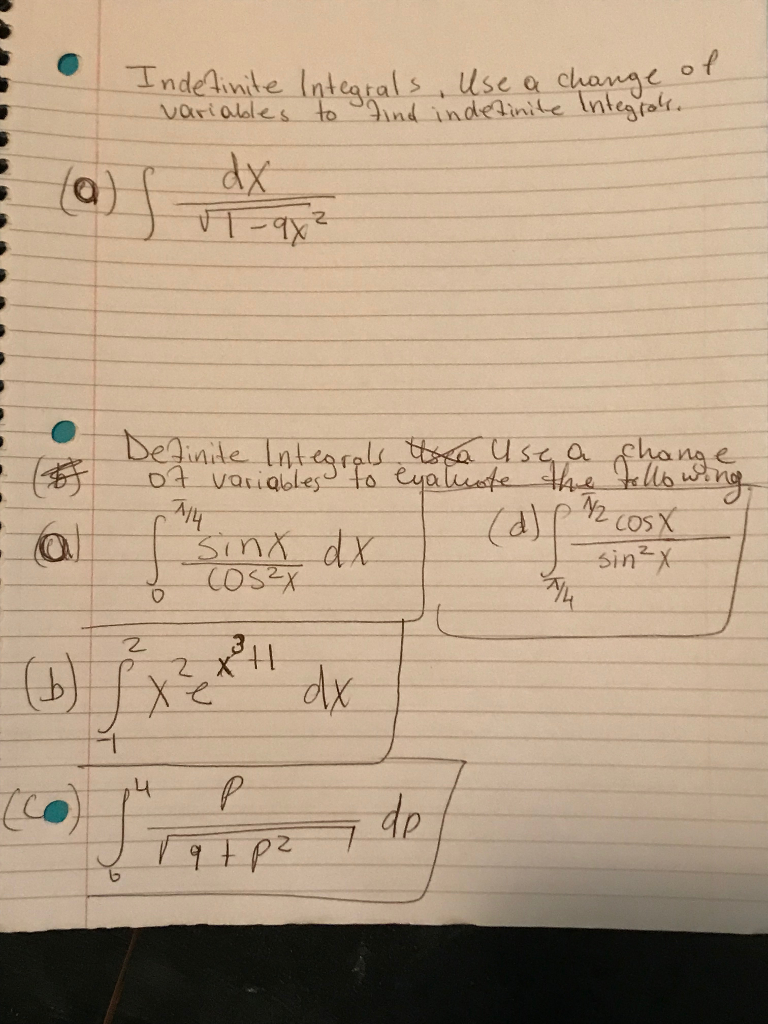 Indefinite Integrals. Use a change of
variables to find indefinite Integrals.
(a) ∫ dx / √(1-9x²)
Definite Integrals. Use a change
of variables to evaluate the following
(a) ∫₀^(π/4) sinx / cos²x dx
(d) ∫_(π/4)^(π/2) cosx / sin²x
(b) ∫₋₁² x² e^(x³+1) dx
(c) ∫₀⁴ p / √(9+p²) dp